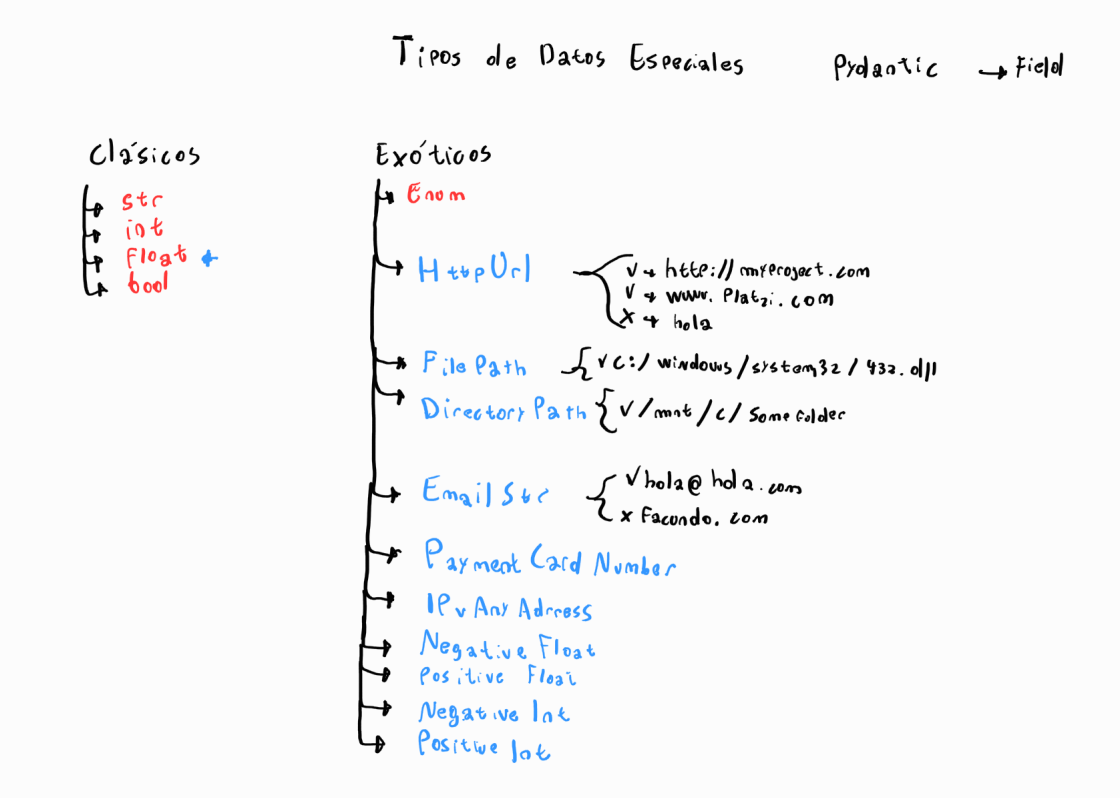 Tipos de Datos Especiales Pydantic → Field
Clásicos
str
int
Float
bool
Exóticos
Enum
HttpUrl
✓ → http://myproject.com
✓ → www.Platzi.com
x → hola
File Path ✓ c:/windows/system32/432.dll
Directory Path ✓ /mnt/c/somefolder
Email Str
✓ hola@hola.com
x Facundo.com
Payment Card Number
IPv Any Adrress
Negative Float
Positive Float
Negative Int
Positive Int